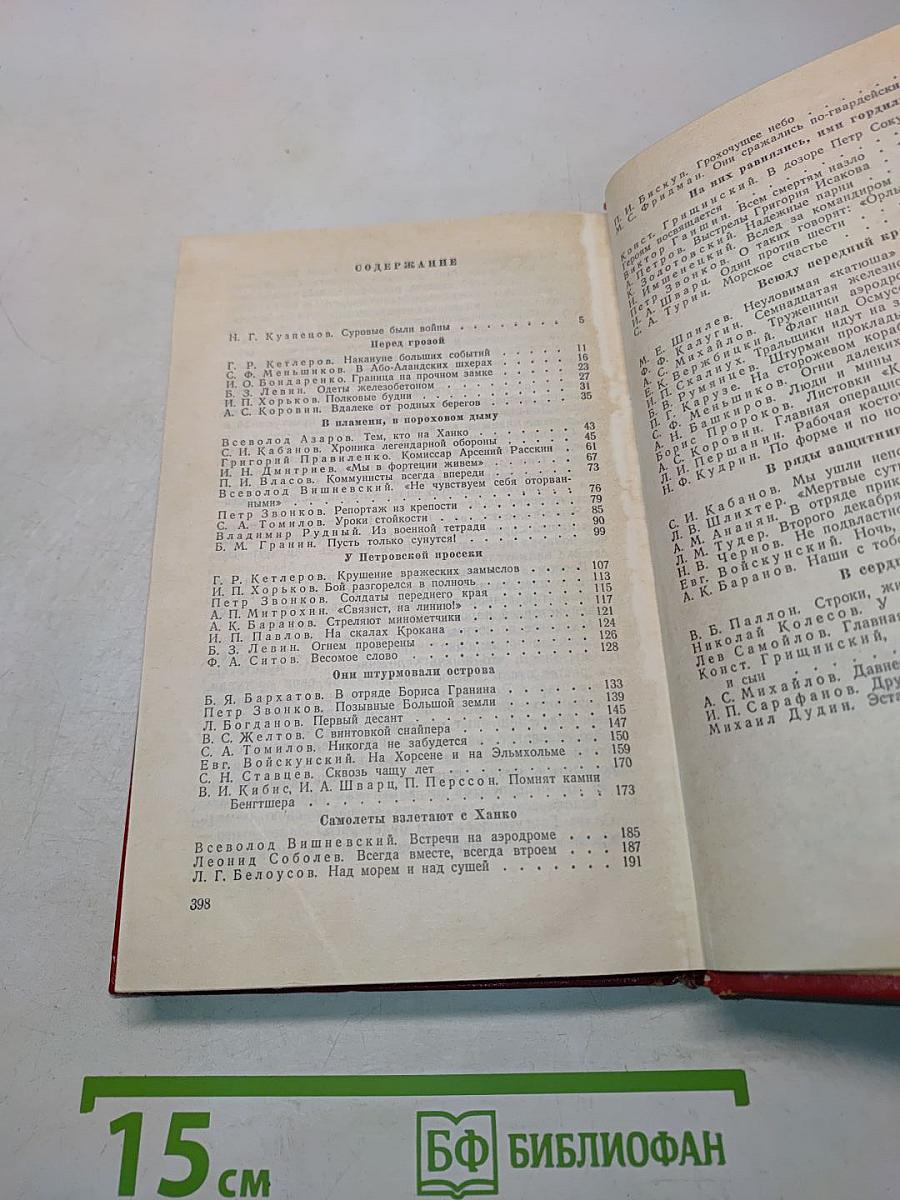 СОДЕРЖАНИЕ
Н. Г. Кузнецов. Суровые были войны . . . . . . . . 5
Перед грозой
Г. Р. Кетлеров. Накануне больших событий . . . . . 11
С. Ф. Меньшиков. В Або-Аландских шхерах . . . . . 16
И. О. Бондаренко. Граница на прочном замке . . . . 23
Б. З. Левин. Одеты железобетоном . . . . . . . . 27
И. П. Хорьков. Полковые будни . . . . . . . . . 31
А. С. Коровин. Вдалеке от родных берегов . . . . . 35
В пламени, в пороховом дыму
Всеволод Азаров. Тем, кто на Ханко . . . . . . . 43
С. И. Кабанов. Хроника легендарной обороны . . . . 45
Григорий Правиленко. Комиссар Арсений Расскин . 61
И. Н. Дмитриев. «Мы в фортеции живем» . . . . . . 67
П. И. Власов. Коммунисты всегда впереди . . . . . 73
Всеволод Вишневский. «Не чувствуем себя оторван-
ными» . . . . . . . . . . . . . . . . 76
Петр Звонков. Репортаж из крепости . . . . . . . 79
С. А. Томилов. Уроки стойкости . . . . . . . . . 85
Владимир Рудный. Из военной тетради . . . . . . 90
Б. М. Гранин. Пусть только сунутся! . . . . . . . 99
У Петровской просеки
Г. Р. Кетлеров. Крушение вражеских замыслов . . . . 107
И. П. Хорьков. Бой разгорелся в полночь . . . . . . 113
Петр Звонков. Солдаты переднего края . . . . . . 115
А. П. Митрохин. «Связист, на линию!» . . . . . . . 117
А. К. Баранов. Стреляют минометчики . . . . . . . 121
И. П. Павлов. На скалах Крокана . . . . . . . . 124
Б. З. Левин. Огнем проверены . . . . . . . . . . 126
Ф. А. Ситов. Весомое слово . . . . . . . . . . . 128
Они штурмовали острова
Б. Я. Бархатов. В отряде Бориса Гранина . . . . . . 133
Петр Звонков. Позывные Большой земли . . . . . . 139
Л. Богданов. Первый десант . . . . . . . . . . . 145
В. С. Желтов. С винтовкой снайпера . . . . . . . . 147
С. А. Томилов. Никогда не забудется . . . . . . . 150
Евг. Войскунский. На Хорсене и на Эльмхольме . . 159
С. Н. Ставцев. Сквозь чащу лет . . . . . . . . . 170
В. И. Кибис, И. А. Шварц, П. Перссон. Помнят камни
Бенгтшера . . . . . . . . . . . . . . . . 173
Самолеты взлетают с Ханко
Всеволод Вишневский. Встречи на аэродроме . . . 185
Леонид Соболев. Всегда вместе, всегда втроем . . . 187
Л. Г. Белоусов. Над морем и над сушей . . . . . . . 191
398
П. И. Бискуп. Грохочущее небо . . . .
М. С. Фридман. Они сражались по-гвардейски
На них равнялись, ими гордились
Конст. Грищинский. В дозоре Петр Соку
Героям посвящается . . . .
Виктор Ганшин. Всем смертям назло . .
А. Петров. Выстрелы Григория Исакова .
К. Золотовский. Надежные парни . . .
Н. Имшенецкий. Вслед за командиром
Петр Звонков. О таких говорят: «Орлы
И. А. Шварц. Один против шести . . .
С. А. Турин. Морское счастье . . .
Всюду передний кр
М. Е. Шпилев. Неуловимая «катюша»
Ф. Ф. Калугин. Семнадцатая железно
А. С. Михайлов. Труженики аэродро
Е. К. Вержбицкий. Флаг над Осмусс
И. П. Скалиух. Тральщики идут на з
Б. В. Румянцев. Штурман проклады
П. Г. Карузе. На сторожевом кораб
С. Ф. Меньшиков. Огни далеких
А. Н. Башкиров. Люди и мины
Борис Пророков. Листовки «К
А. С. Коровин. Главная операцио
Л. И. Першанин. Рабочая косто
Н. Ф. Кудрин. По форме и по но
В ряды защитник
С. И. Кабанов. Мы ушли непо
Л. В. Шлихтер. «Мертвые сут
А. М. Ананян. В отряде прик
Л. М. Тудер. Второго декабря
Н. В. Чернов. Не подвластно
Евг. Войскунский. Ночь,
А. К. Баранов. Наши с тобо
В серд
В. Б. Паллон. Строки, жи
Николай Колесов. У
Лев Самойлов. Главная
Конст. Грищинский,
и сын . . . .
А. С. Михайлов. Давне
И. П. Сарафанов. Дру
Михаил Дудин. Эста
15 см
БФ БИБЛИОФАН